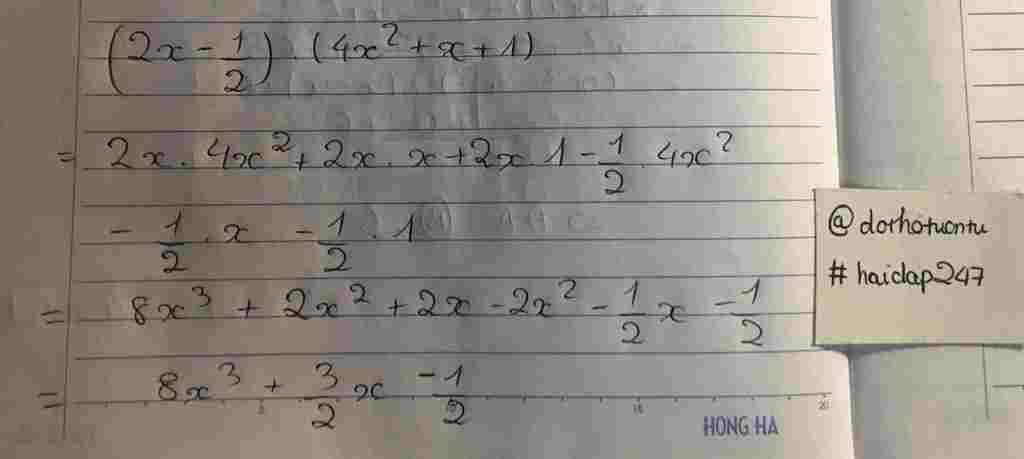 (2x - 1/2) . (4x² + x + 1)
= 2x . 4x² + 2x . x + 2x . 1 - 1/2 . 4x²
- 1/2 . x - 1/2 . 1
= 8x³ + 2x² + 2x - 2x² - 1/2 x - 1/2
= 8x³ + 3/2 x - 1/2
@dorhotuontu
#haidap247
HONG HA